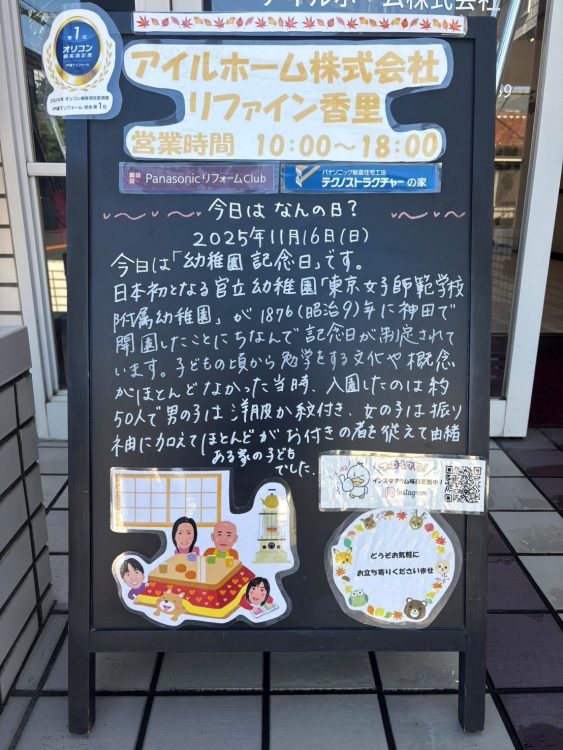 アイルホーム株式会社
第1位
オリコン
顧客満足度調査
アイルホーム株式会社
リファイン香里
営業時間 10:00〜18:00
Panasonic リフォームClub
パナソニック耐震住宅工法
テクノストラクチャーの家
今日は なんの日?
2025年11月16日(日)
今日は「幼稚園 記念日」です。
日本初となる官立幼稚園「東京女子師範学校
附属幼稚園」が1876(昭治9)年に神田で
開園したことにちなんで記念日が制定されて
います。子どもの頃から勉学をする文化や概念
がほとんどなかった当時、入園したのは約
50人で男の子は洋服か紋付き、女の子は振り
袖に加えてほとんどがお付きの者を従えて由緒
ある家の子ども
でした。
インスタグラム毎日更新中!
Instagram
どうぞお気軽に
お立ち寄りくださいませ